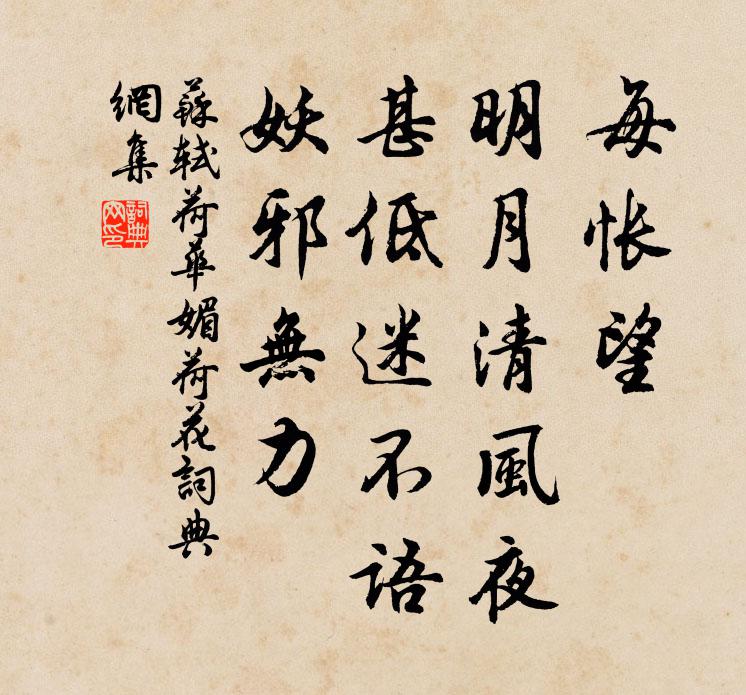 每悵望
明月清風夜
甚低迷不語
妖邪無力
蘇軾荷華媚荷花詞典
網集
詞典
網印